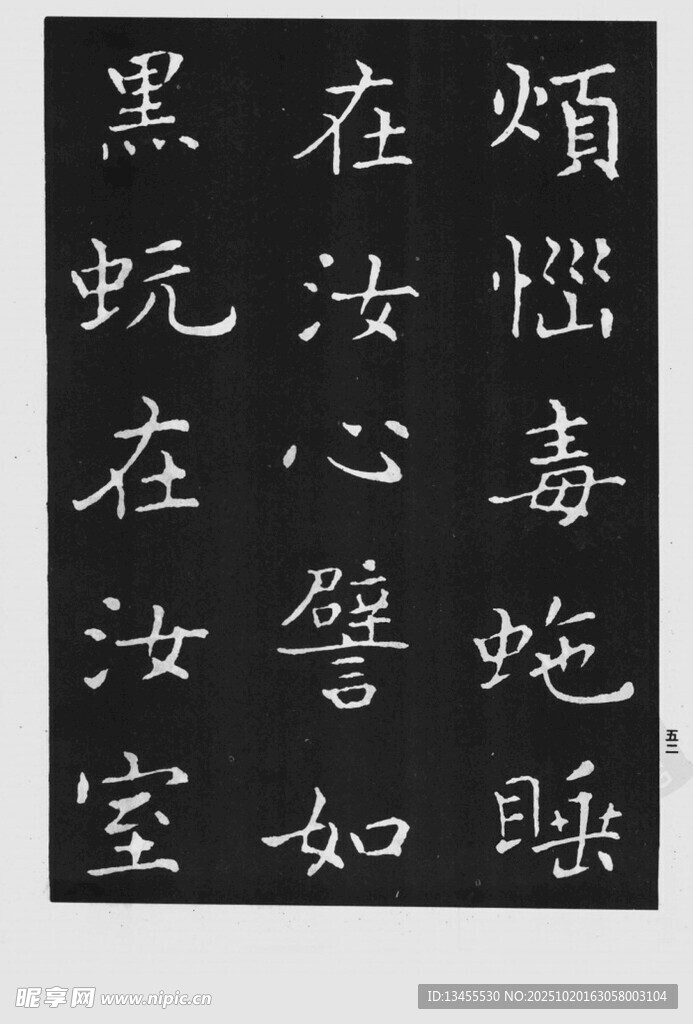 煩惱毒虵睡
在汝心譬如
黒蚖在汝室
五二
昵享网 www.nipic.cn
ID:13455530 NO:20251020163058003104